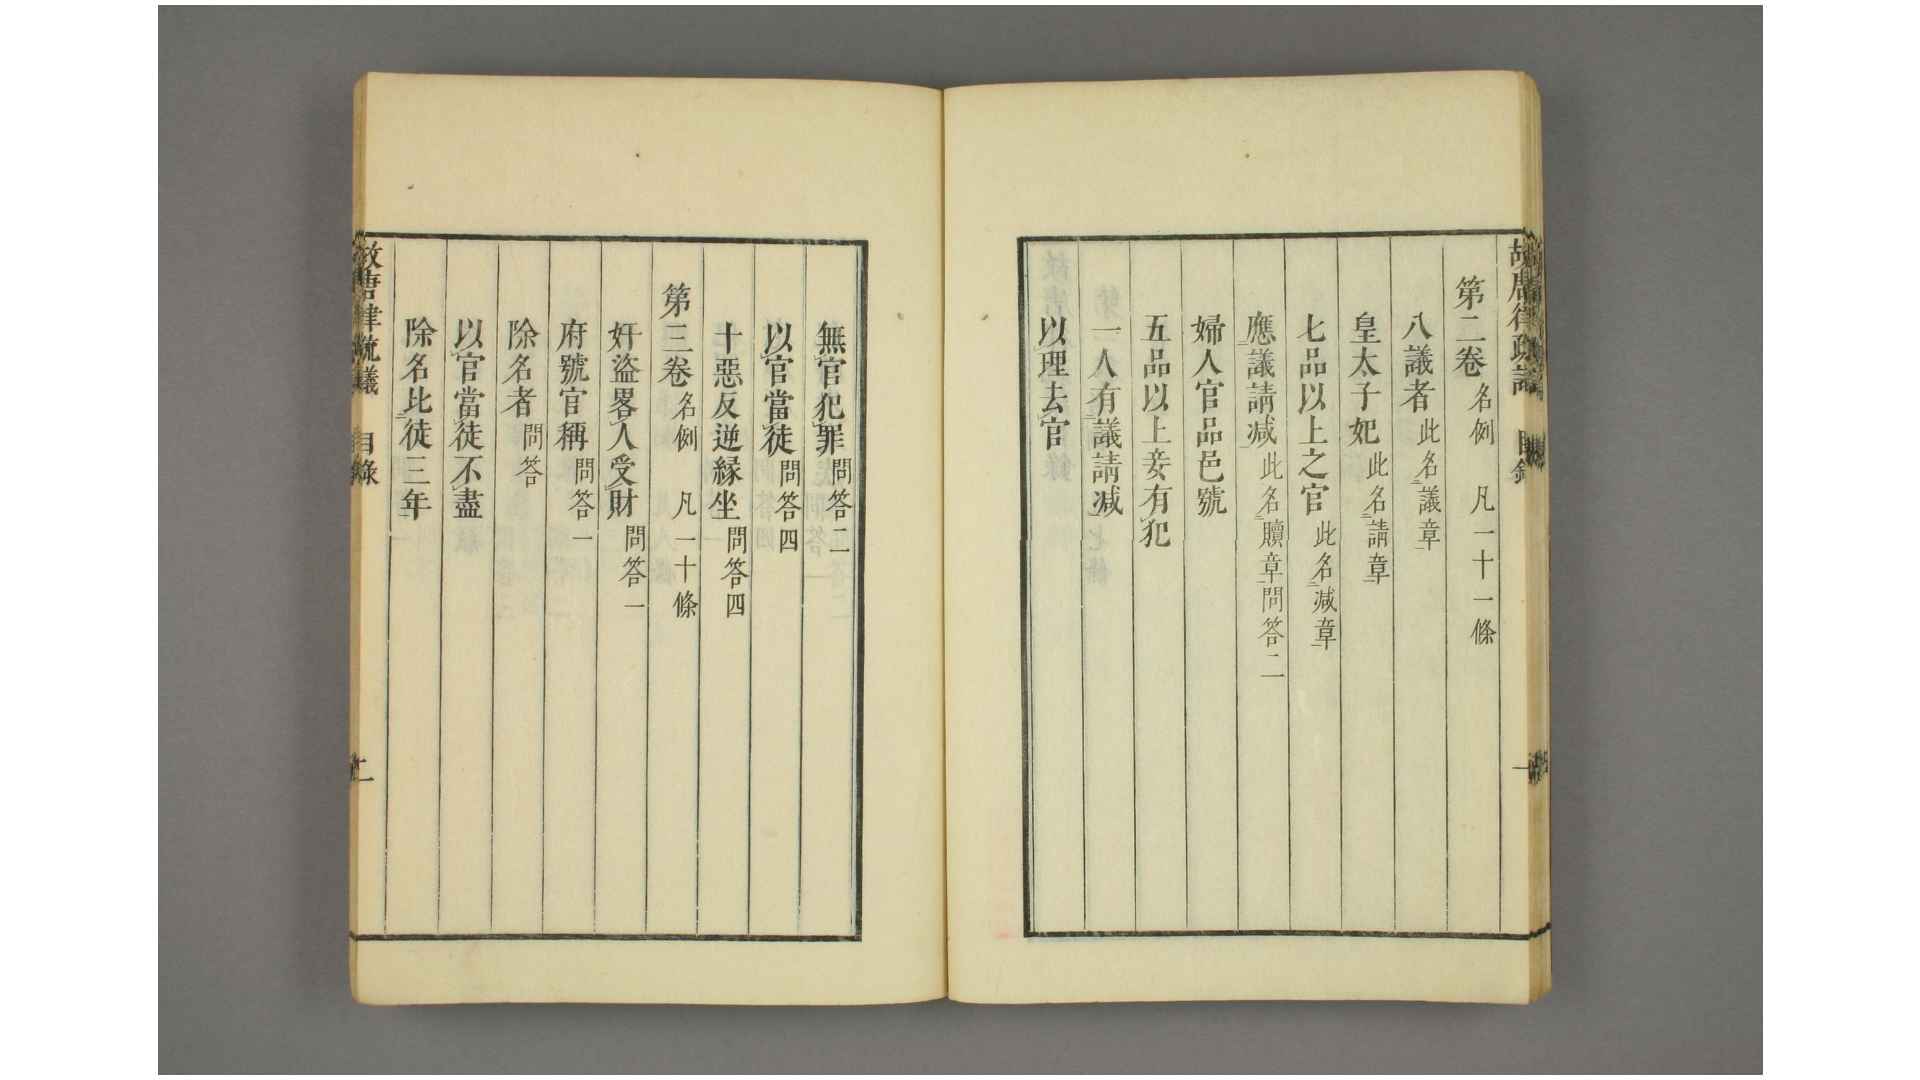 故唐律疏議 目錄 一
第二卷 名例 凡一十一條
八議者 此名議章
皇太子妃 此名請章
七品以上之官 此名减章
應議請减 此名贖章問答二
婦人官品邑號
五品以上妾有犯
一人有議請减
以理去官
無官犯罪 問答二
以官當徒 問答四
十惡反逆緣坐 問答四
第三卷 名例 凡一十條
奸盜畧人受財 問答一
府號官稱 問答一
除名者 問答
以官當徒不盡
除名比徒三年
故唐律疏議 目錄 二